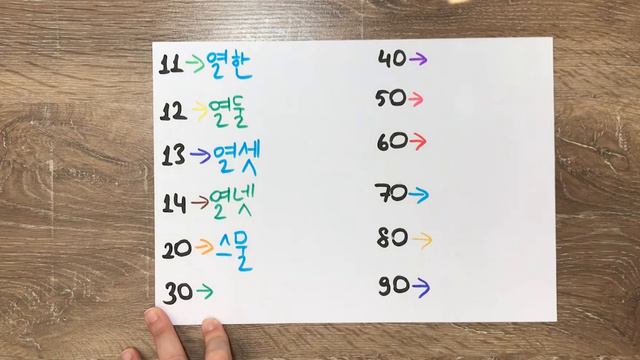 11→열한
12→열둘
13→열셋
14→열넷
20→스물
30→
40→
50→
60→
70→
80→
90→